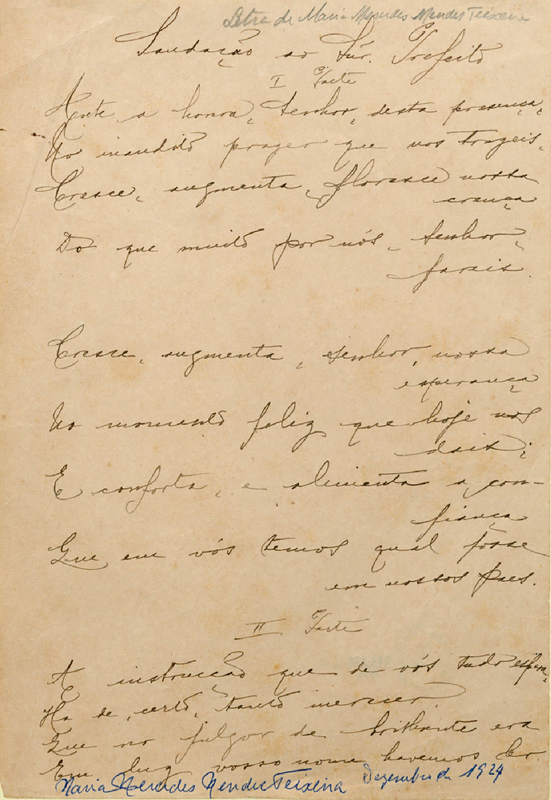 Letra de Maria Mercedes Mendes Teixeira
Saudação ao Snr. Prefeito
I Parte
a honra, Senhor, desta presença,
No inaudito prazer que nos trazeis,
Cresce, augmenta, floresce nossa
crença
Do que muito por nós, Senhor,
fareis.
Cresce, augmenta, Senhor, nossa
esperança
No momento feliz que hoje nos
dais;
E conforta, e alimenta a con-
fiança
Que em vós temos qual fosse
em nossos paes.
II Parte
A instrucção que de vós tudo espera,
Ha de, certo, tanto merecer.
Que no fulgor de brilhante era
Em luz vosso nome havemos
Maria Mercedes Mendes Teixeira Dezembro de 1924